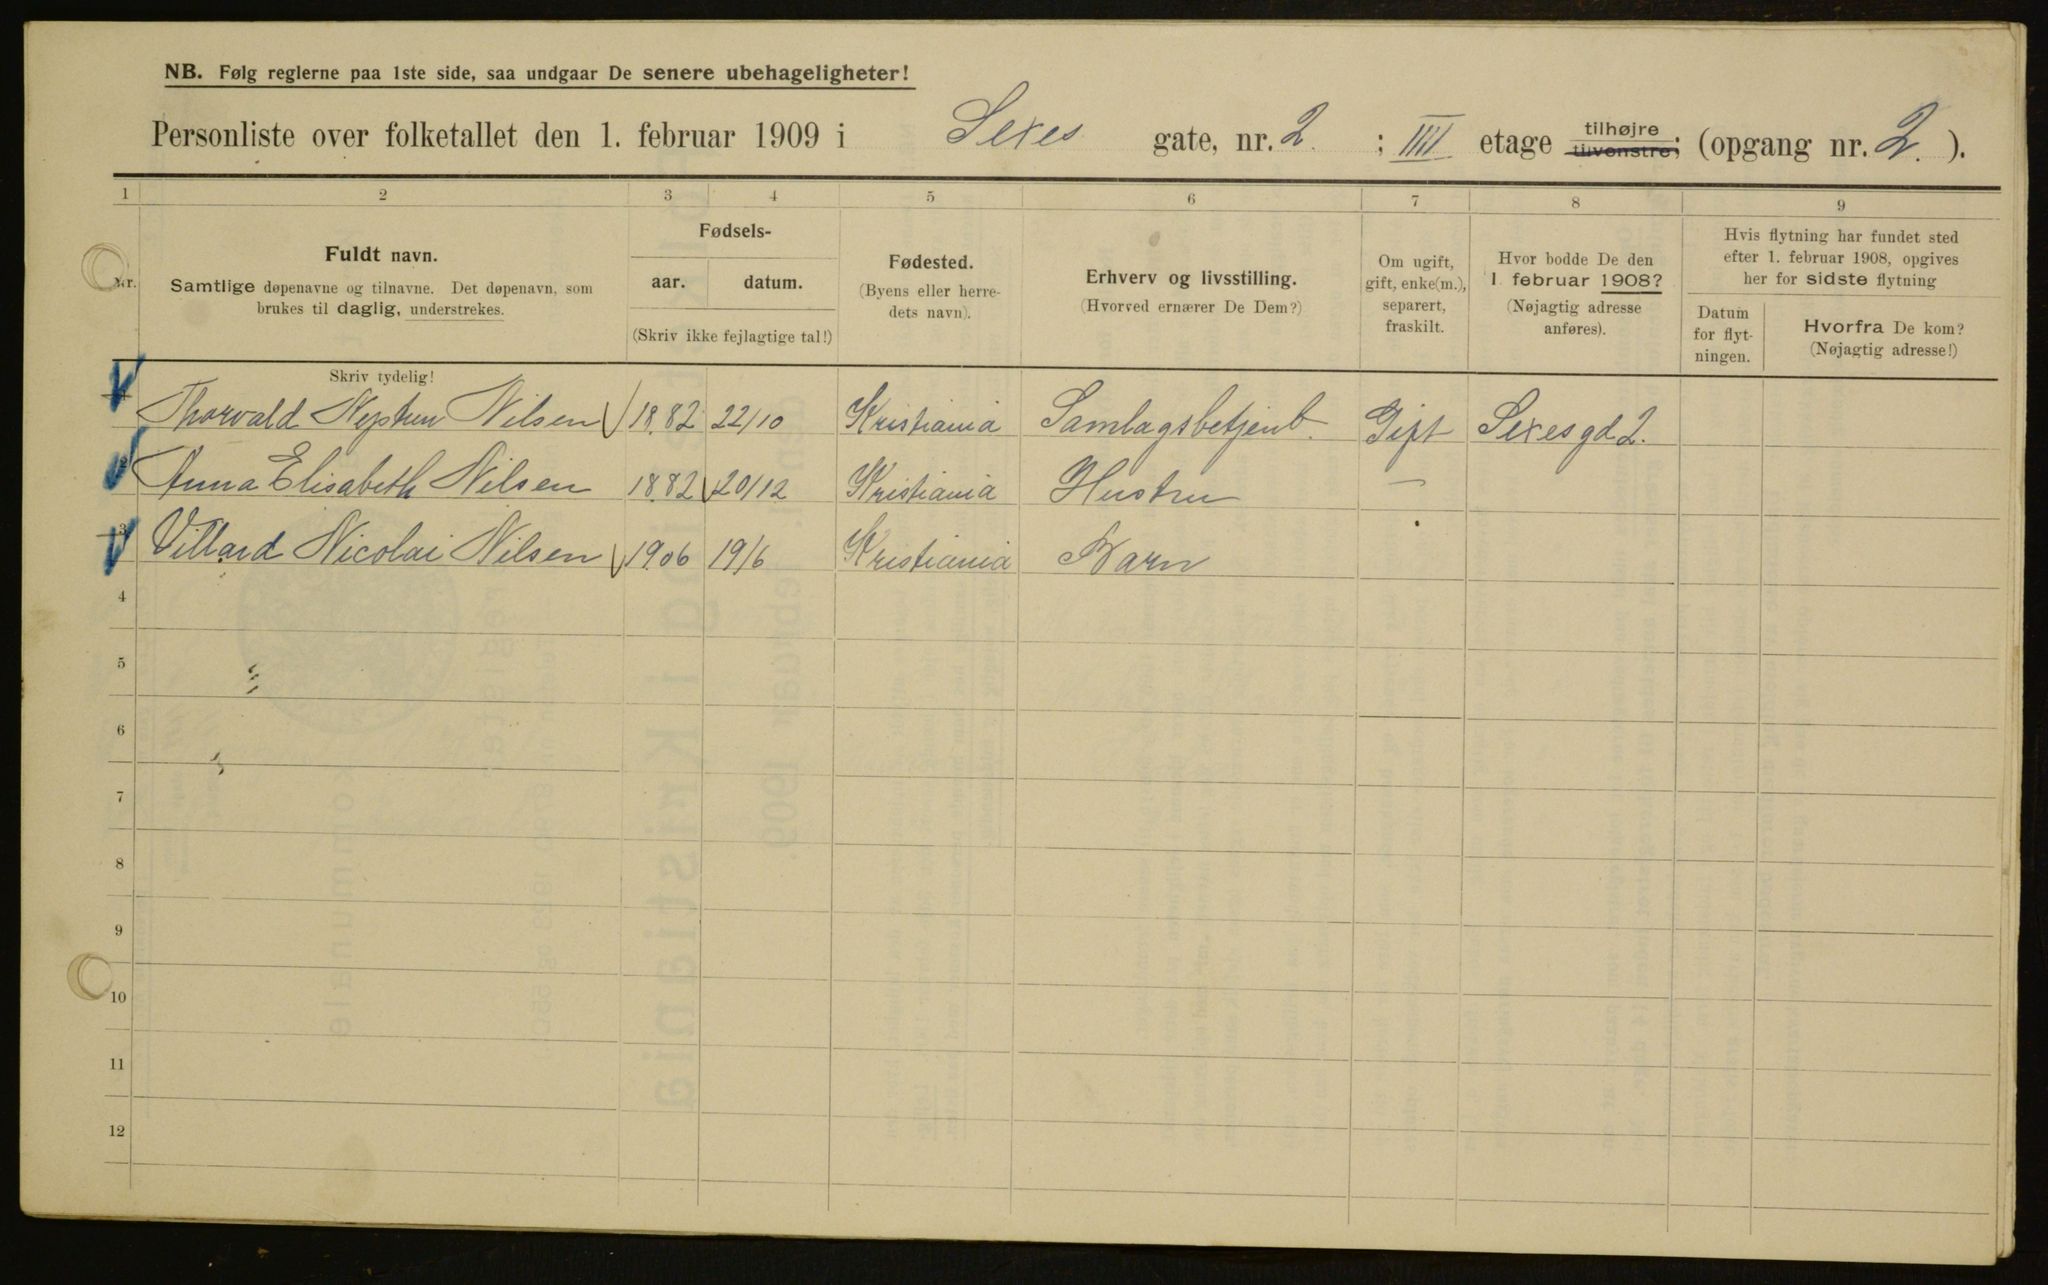 NB. Følg reglerne paa 1ste side, saa undgaar De senere ubehageligheter!
Personliste over folketallet den 1. februar 1909 i Sexes gate, nr. 2. ; IIII etage tilhøjre tilvenstre; (opgang nr. 2. ).
1 2 3 4 5 6 7 8 9
Nr.
Fuldt navn.
Samtlige døpenavne og tilnavne. Det døpenavn, som
brukes til daglig, understrekes.
Skriv tydelig!
Fødsels-
aar. datum.
(Skriv ikke fejlagtige tal!)
Fødested.
(Byens eller herre-
dets navn).
Erhverv og livsstilling.
(Hvorved ernærer De Dem?)
Om ugift,
gift, enke(m.),
separert,
fraskilt.
Hvor bodde De den
1 februar 1908?
(Nøjagtig adresse
anføres).
Hvis flytning har fundet sted
efter 1. februar 1908, opgives
her for sidste flytning
Datum
for flyt-
ningen.
Hvorfra De kom?
(Nøjagtig adresse!)
Thorvald Neptun Nilsen 1882 22/10 Kristiania Samlagsbetjent. Gift Sexesgd 2.
2 Anna Elisabeth Nilsen 1882 20/12 Kristiania Hustru —
3 Villard Nicolai Nilsen 1906 19/6 Kristiania Barn
4
5
6
7
8
9
10
11
12